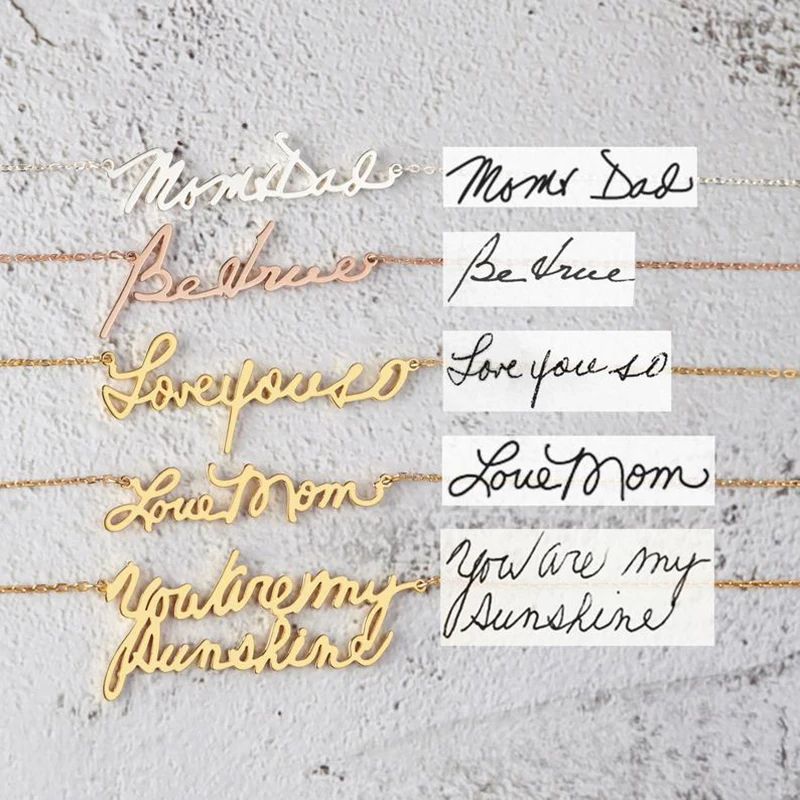 Mom & Dad
Mom & Dad
Be true
Be true
Love you so
Love you so
Love Mom
Love Mom
You are my
sunshine
You are my
sunshine